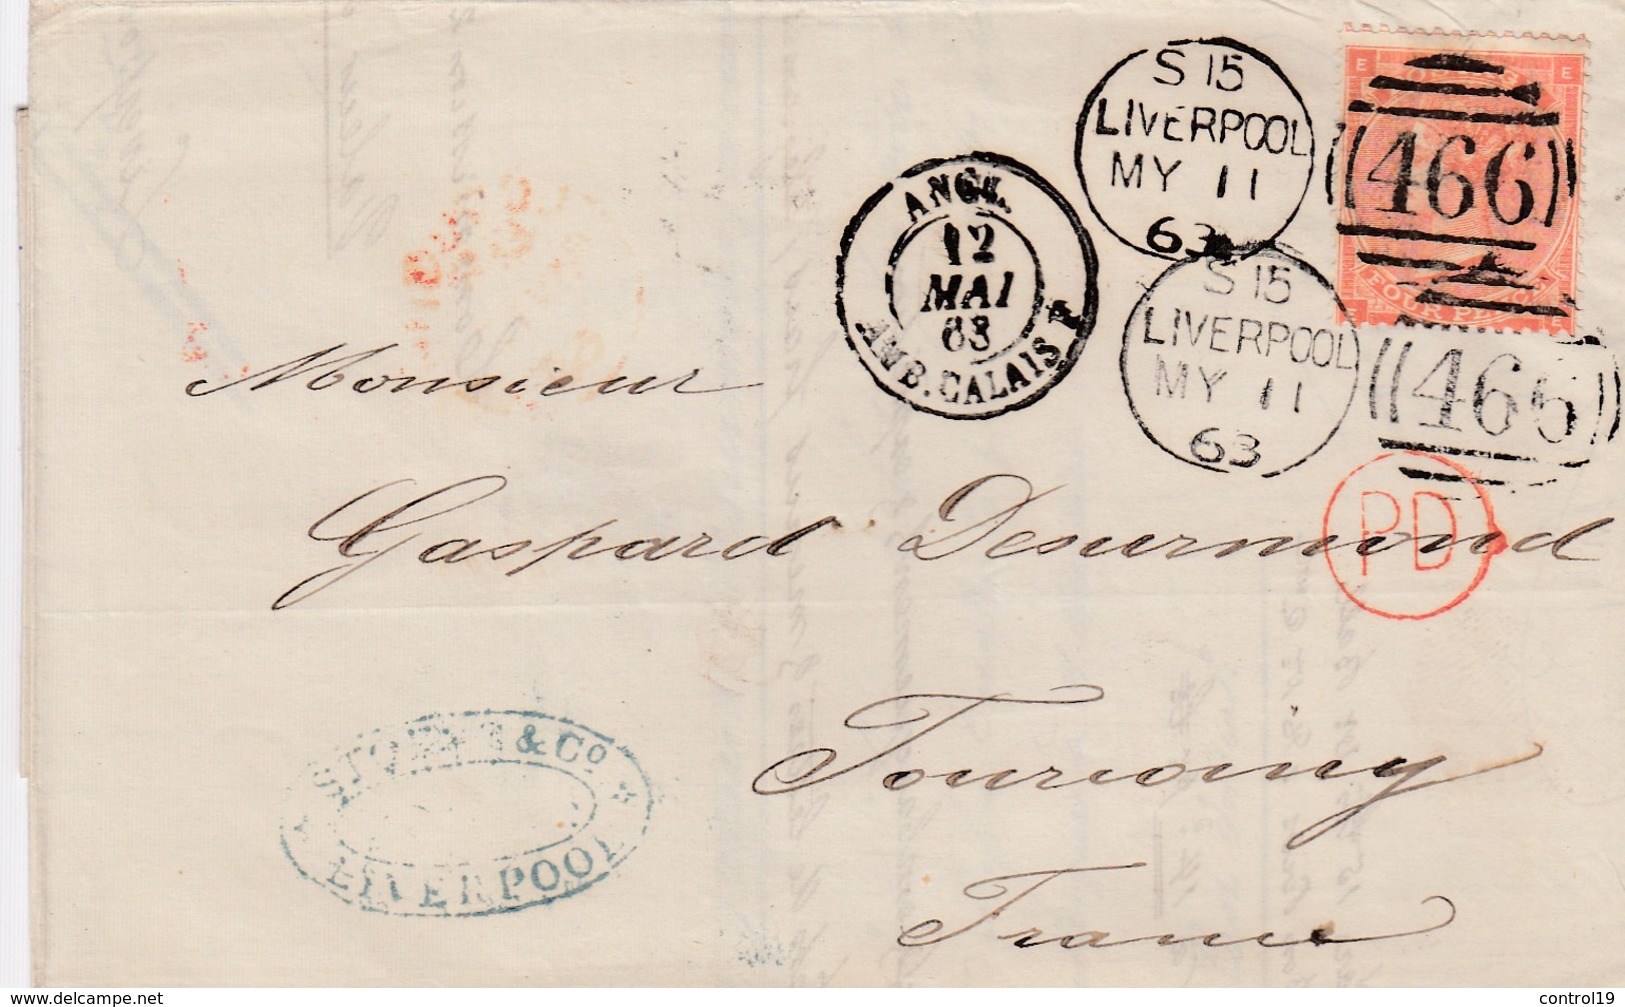 S 15
LIVERPOOL
MY 11
63
466
E E
FOUR PENCE
ANGL.
12
MAI
63
AMB. CALAIS F
S 15
LIVERPOOL
MY 11
63
466
PD
Monsieur
Gaspard Desurmond
Tourcoing
France
& Co.
LIVERPOOL
www.delcampe.net
control19